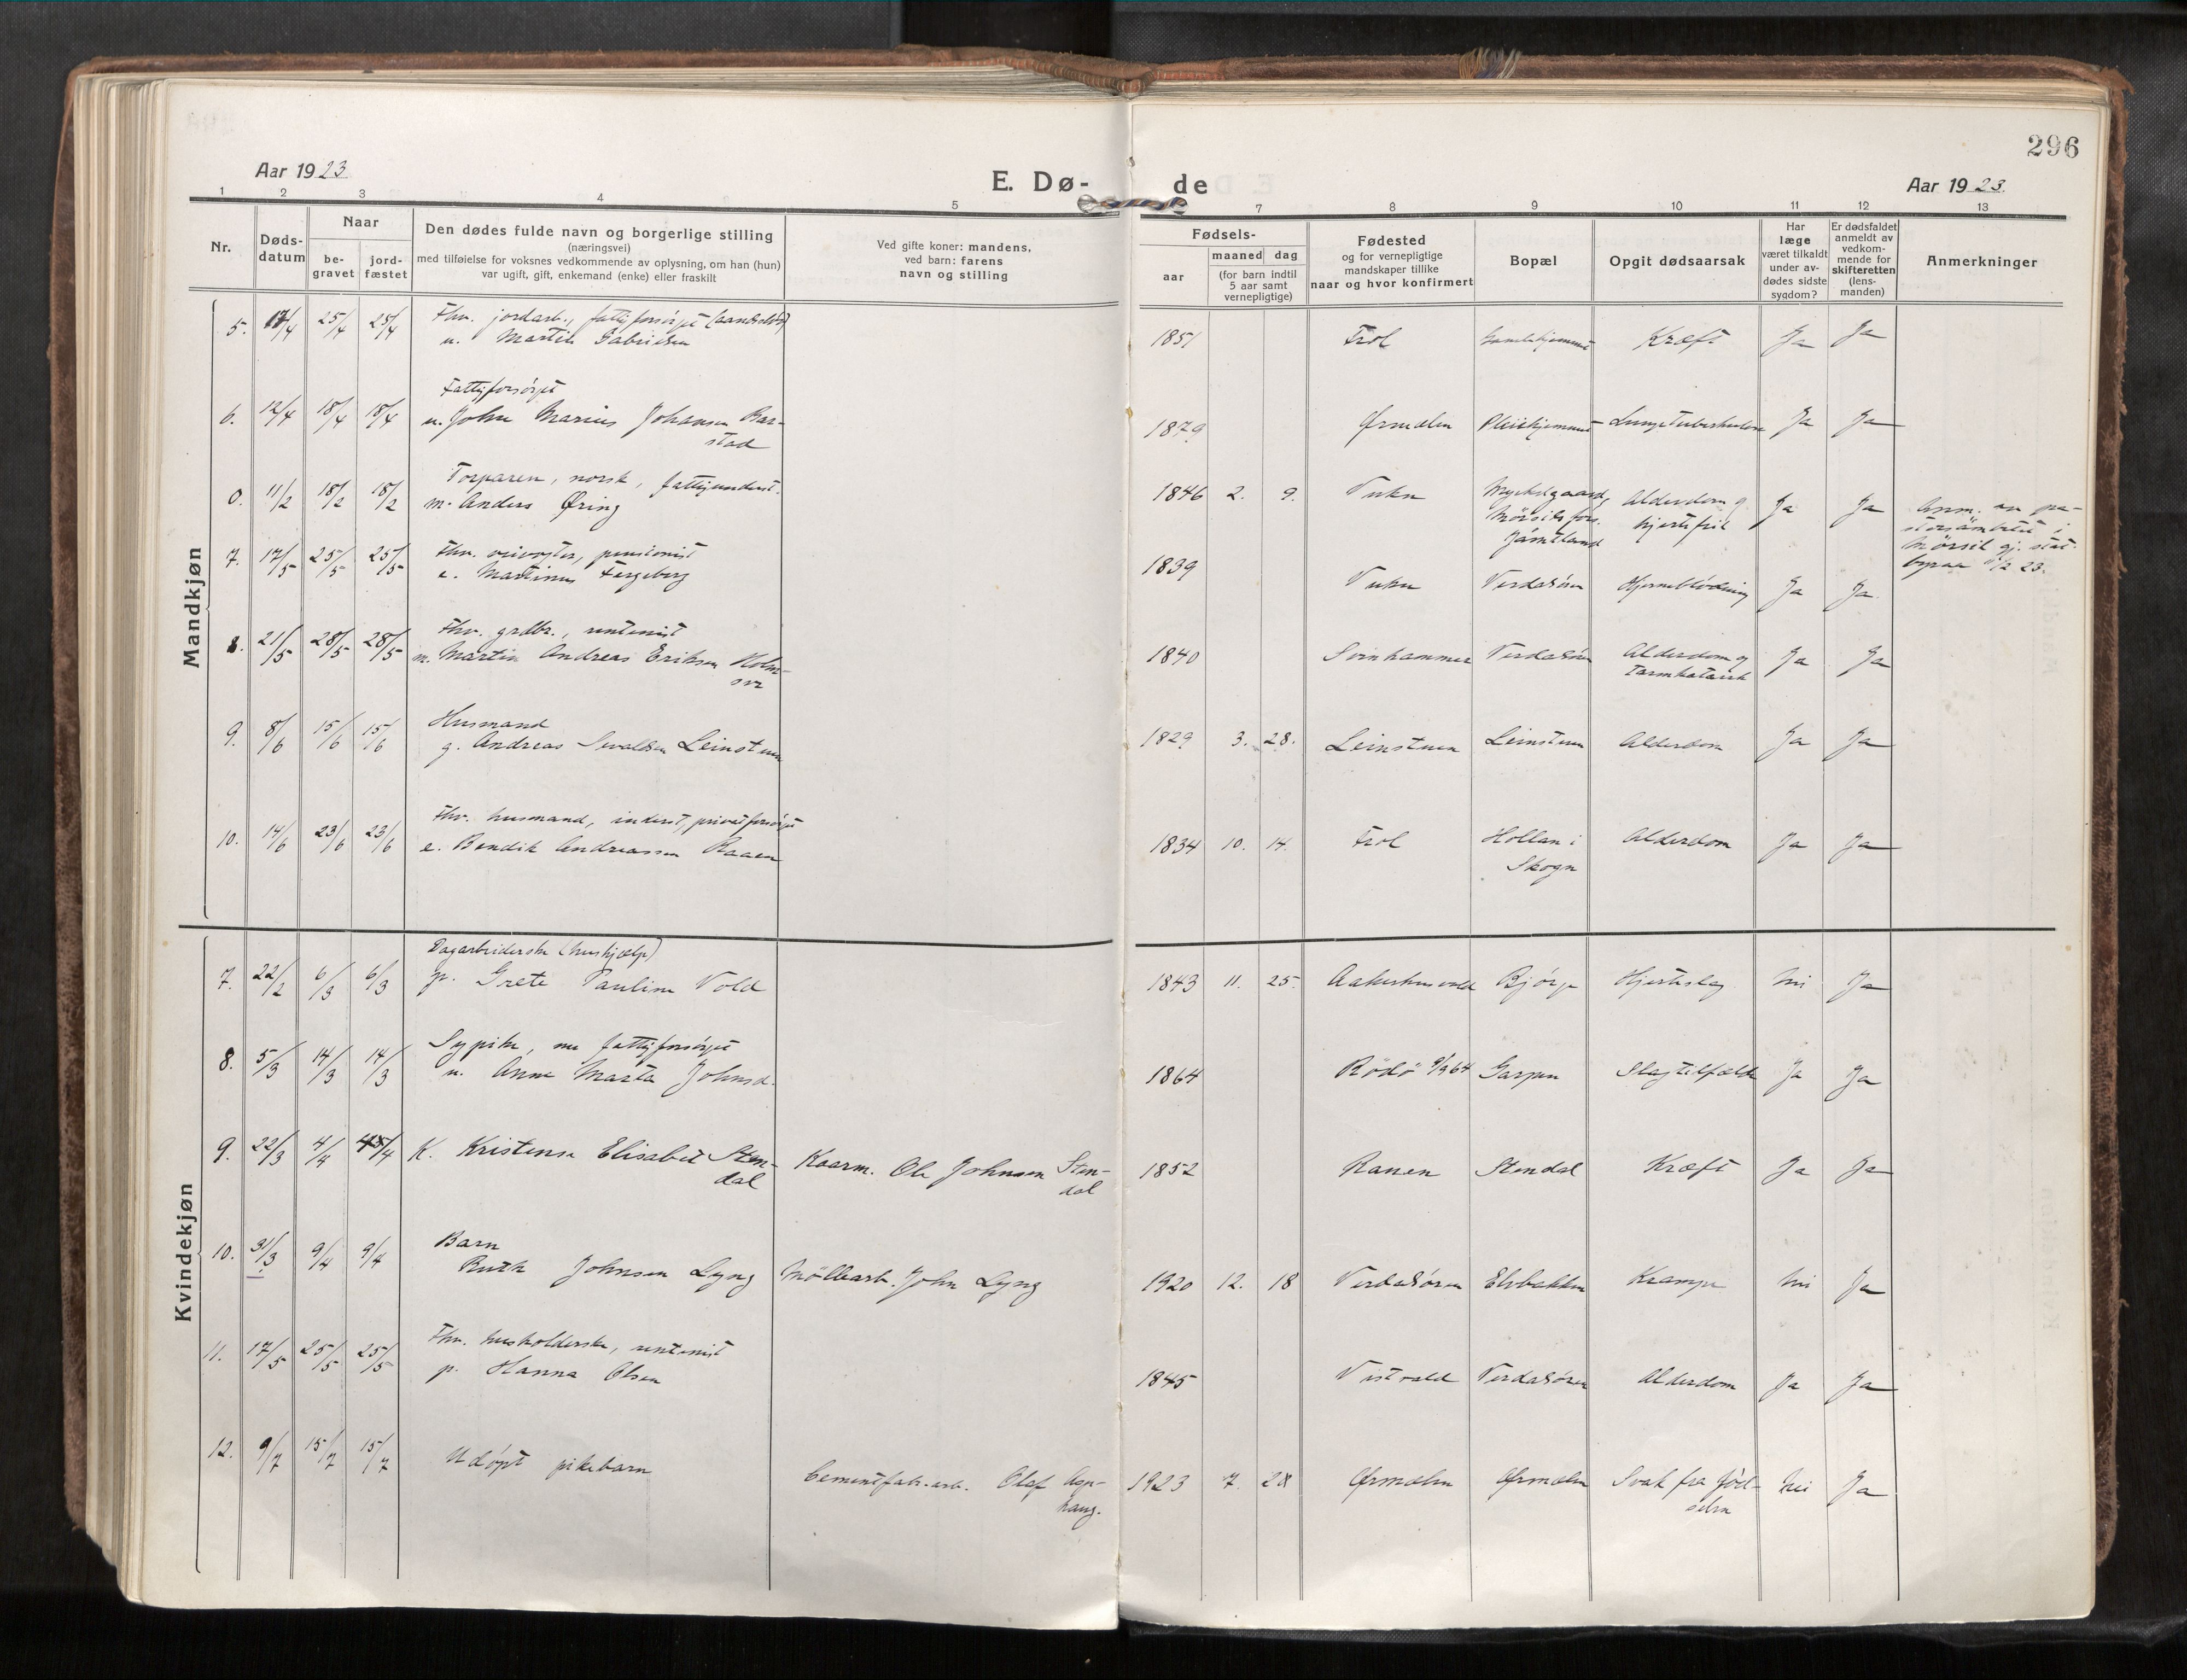 296
Aar 1923
E. Dø-
de
Aar 1923.
1 2 3 4 5 7 8 9 10 11 12 13
Nr.
Døds-
datum
Naar
be-
gravet
jord-
fæstet
Den dødes fulde navn og borgerlige stilling
(næringsvei)
med tilføielse for voksnes vedkommende av oplysning, om han (hun)
var ugift, gift, enkemand (enke) eller fraskilt
Ved gifte koner: mandens,
ved barn: farens
navn og stilling
Fødsels-
aar
maaned dag
(for barn indtil
5 aar samt
vernepligtige)
Fødested
og for vernepligtige
mandskaper tillike
naar og hvor konfirmert
Bopæl
Opgit dødsaarsak
Har
læge
været tilkaldt
under av-
dødes sidste
sygdom?
Er dødsfaldet
anmeldt av
vedkom-
mende for
skifteretten
(lens-
manden)
Anmerkninger
Mandkjøn
Fhv. jordarb., fattigforsörget (aandssløv)
5. 17/4 25/4 25/4 u. Martin Gabrielsen 1851 Frol Gamlehjemmet Kræft Ja Ja
Fattigforsörget
6. 12/4 18/4 18/4 u. John Marius Johansen Bar-
stad
1879 Ørmelen Pleiehjemmet Lungetuberkulose Ja Ja
Torparen, norsk, fattigunderst.
0. 11/2 18/2 18/2 m. Anders Øring 1846 2. 9. Vuku
Myckelgaard,
Mörsils fors.
Jämtland
Alderdom og
hjertefeil
Ja Ja
Anm. av pa-
storsämbetet i
Mörsil gj. stat.
byraa 23.
Fhv. veivogter, pensionist
7. 17/5 25/5 25/5 e. Martinus Fergeberg 1839 Vuku Verdalsören Hjerneblödning Ja Ja
Fhv. grdbr., rentenist
8. 21/5 28/5 28/5 m. Martin Andreas Eriksen Holm-
svr
1840 Svinhammer Verdalsören
Alderdom og
tarmkatarrh
Ja Ja
Husmand
9. 8/6 15/6 15/6 g. Andreas Sevaldsen Leinstuen 1829 3. 28. Leinstuen Leinstuen Alderdom Ja Ja
Fhv. husmand, inderst, privatforsörget
10. 14/6 23/6 23/6 e. Bendik Andreassen Raaen 1834 10. 14. Frol
Hollan i
Skogn
Alderdom Ja Ja
Kvindekjøn
Dagarbeiderske (hushjælp)
7. 22/2 6/3 6/3 p. Grete Pauline Vold 1843 11. 25. Aakerhusvald Bjørge Hjerteslag Nei Ja
Sypike, nu fattigforsörget
8. 5/3 14/3 14/3 u. Anne Marta Johnsd. 1864 Rödö 9/9 64 Garpen Slagtilfælde Ja Ja
9. 22/3 4/4 45/4 K. Kristense Elisabet Sten-
dal
Kaarm. Ole Johnsen Sten-
dal
1852 Ranen Stendal Kræft Ja Ja
Barn
10. 31/3 9/4 9/4 Ruth Johnsen Lyng Möllearb. John Lyng 1920 12. 18 Verdalsören Elvbakken Krampe Nei Ja
Fhv. husholderske, rentenist
11. 17/5 25/5 25/5 p. Hanna Olsen 1845 Vistvald Verdalsören Alderdom Ja Ja
12. 9/7 15/7 15/7 Udöpt pikebarn Cementfabr.arb. Olaf Asp-
haug.
1923 7. 28 Ørmelen Ørmelen Svak fra föd-
selen
Nei Ja